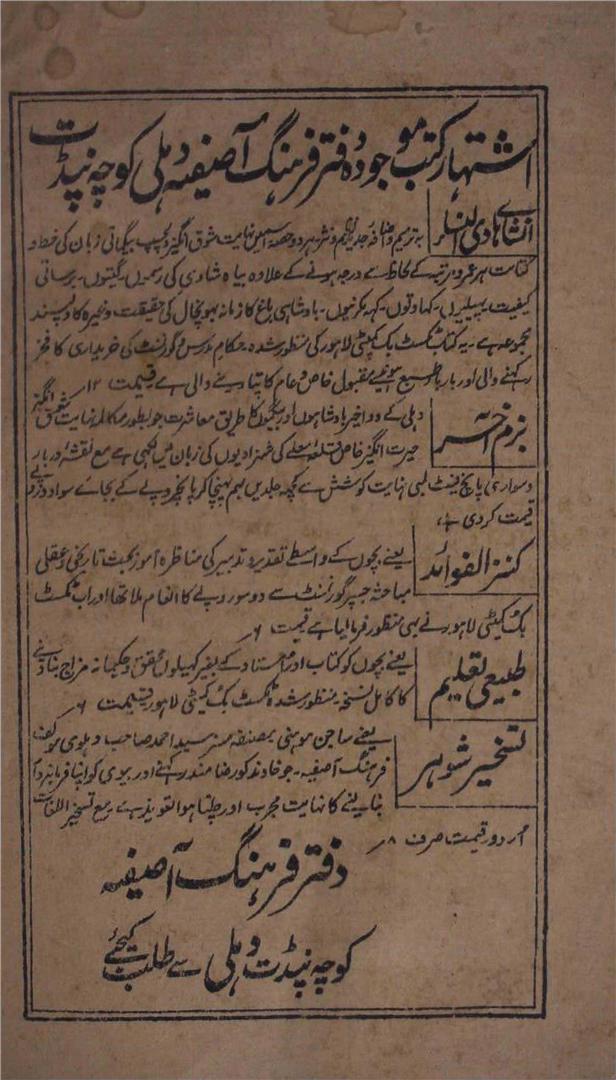 اشتہار کتب موجودہ دفتر فرہنگ آصفیہ دہلی کوچہ پنڈت
انشاے ہادی النسا
بہ ترمیم و اضافہ جدید نظم و نثر ہر دو حصہ اسمیں نہایت شوق انگیز دلچسپ بیگماتی زبان کی خط و
کتابت ہر عمر و ہر رتبہ کے لحاظ سے درج ہونے کے علاوہ بیاہ شادی کی رسموں۔ گیتوں۔ برساتی
کیفیت۔ پہیلیوں۔ کہاوتوں۔ کہہ مکرنیوں۔ بادشاہی باغ کا زمانہ بھونچال کی حقیقت وغیرہ کا دلپسند
مجموعہ ہے۔ یہ کتاب ٹکسٹ بک کمیٹی لاہور کی منظور شدہ، حکام مدرس و گورنمنٹ کی خریداری کا فخر
رکہنے والی اور بار بار طبع ہونیسے مقبول خاص و عام کا پتا دینے والی ہے۔ قیمت ۱۲؍
بزم آخر
دہلی کے دو اخیر بادشاہوں اور بیگموں کا طریق معاشرت جو بطور مکالمہ نہایت شوق انگیز
حیرت انگیز خاص قلعہ معلے کی شہزادیوں کی زبان میں لکہی ہے مع نقشہ دربار
و سواری پانچ فیٹ لمبی نہایت کوشش سے کچھ جلدیں بہم پہنچا کر پانچروپے کے بجائے سوا دو روپے
قیمت کر دی ہے،
کنز الفوائد
یعنے بچوں کے واسطے تقدیر و تدبیر کی مناظرہ آموز بحث تاریخی و عقلی
مباحثہ جسپر گورنمنٹ سے دو سو روپے کا انعام ملا تھا اور اب ٹکسٹ
بک کمیٹی لاہور نے بہی منظور فرمایا ہے قیمت ۶؍
طبیعی تعلیم
یعنے بچوں کو کتاب اور استاد کے بغیر کھیلوں محقق و حکیمانہ مزاج بنا دینے
کا کامل نسخہ منظور شدہ ٹکسٹ بک کمیٹی لاہور قیمت ۶؍
تسخیر شوہر
یعنے ساجن موہنی بمصنفہ سید احمد صاحب دہلوی مولف
فرہنگ آصفیہ۔ جو خاوند کو رضامند رکہنے اور بیوی کو اپنا فرمانبردار
بنا لینے کا نہایت مجرب اور چلتا ہوا تعویذ ہے مع تسخیر اللغات
اُردو قیمت صرف ۸؍
دفتر فرہنگ آصفیہ
کوچہ پنڈت دہلی سے طلب کیجئے